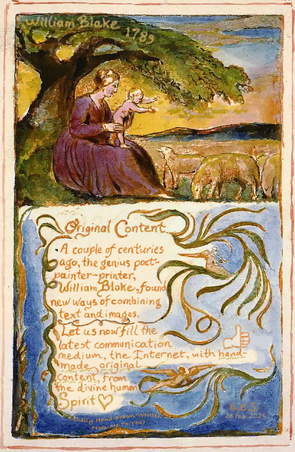 William Blake 1789
Original Content
A couple of centuries
ago, the genius poet-
painter-printer,
William Blake, found
new ways of combining
text and images.
Let us now fill the
latest communication
medium, the Internet, with hand-
made original
content, from
the divine human
Spirit